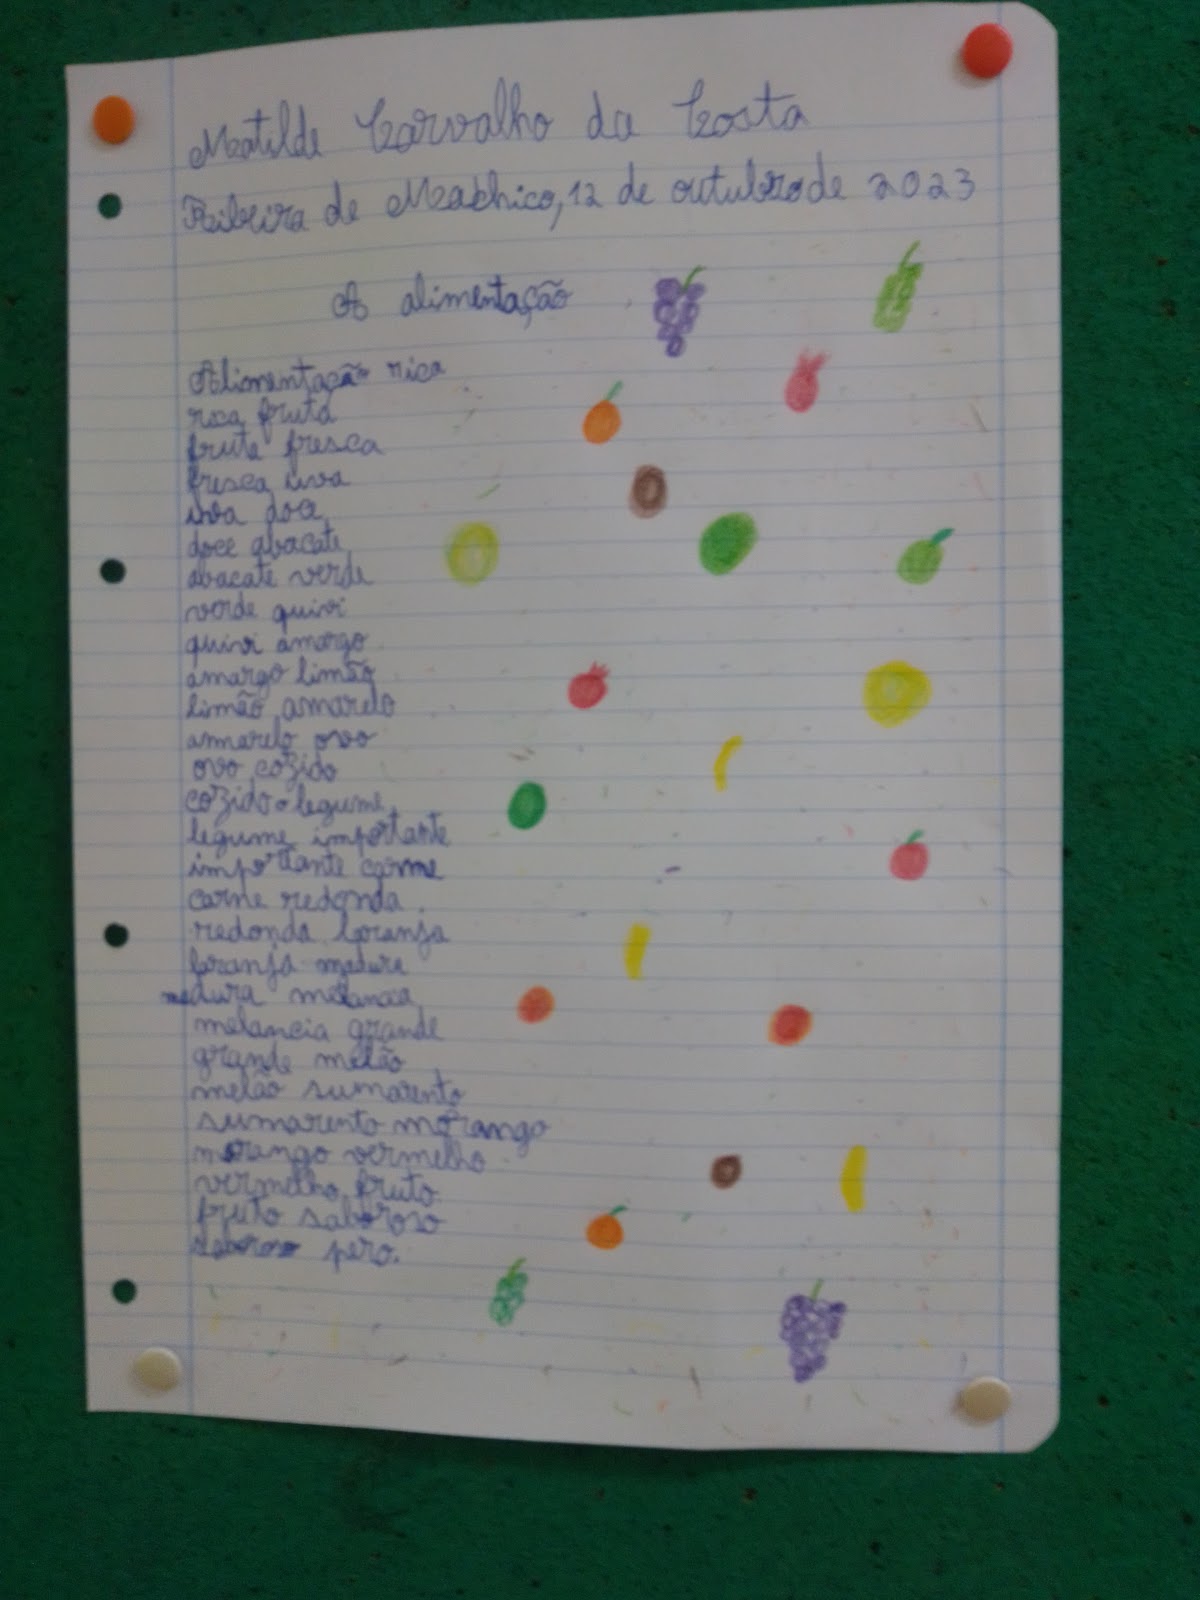 Matilde Carvalho da Costa
Ribeira de Machico, 12 de outubro de 2023
A alimentação
Alimentação rica
rica fruta
fruta fresca
fresca uva
uva doce
doce abacate
abacate verde
verde quivi
quivi amargo
amargo limão
limão amarelo
amarelo ovo
ovo cozido
cozido legume
legume importante
importante carne
carne redonda
redonda laranja
laranja madura
madura melancia
melancia grande
grande melão
melão sumarento
sumarento morango
morango vermelho
vermelho fruto
fruto saboroso
saboroso pero.